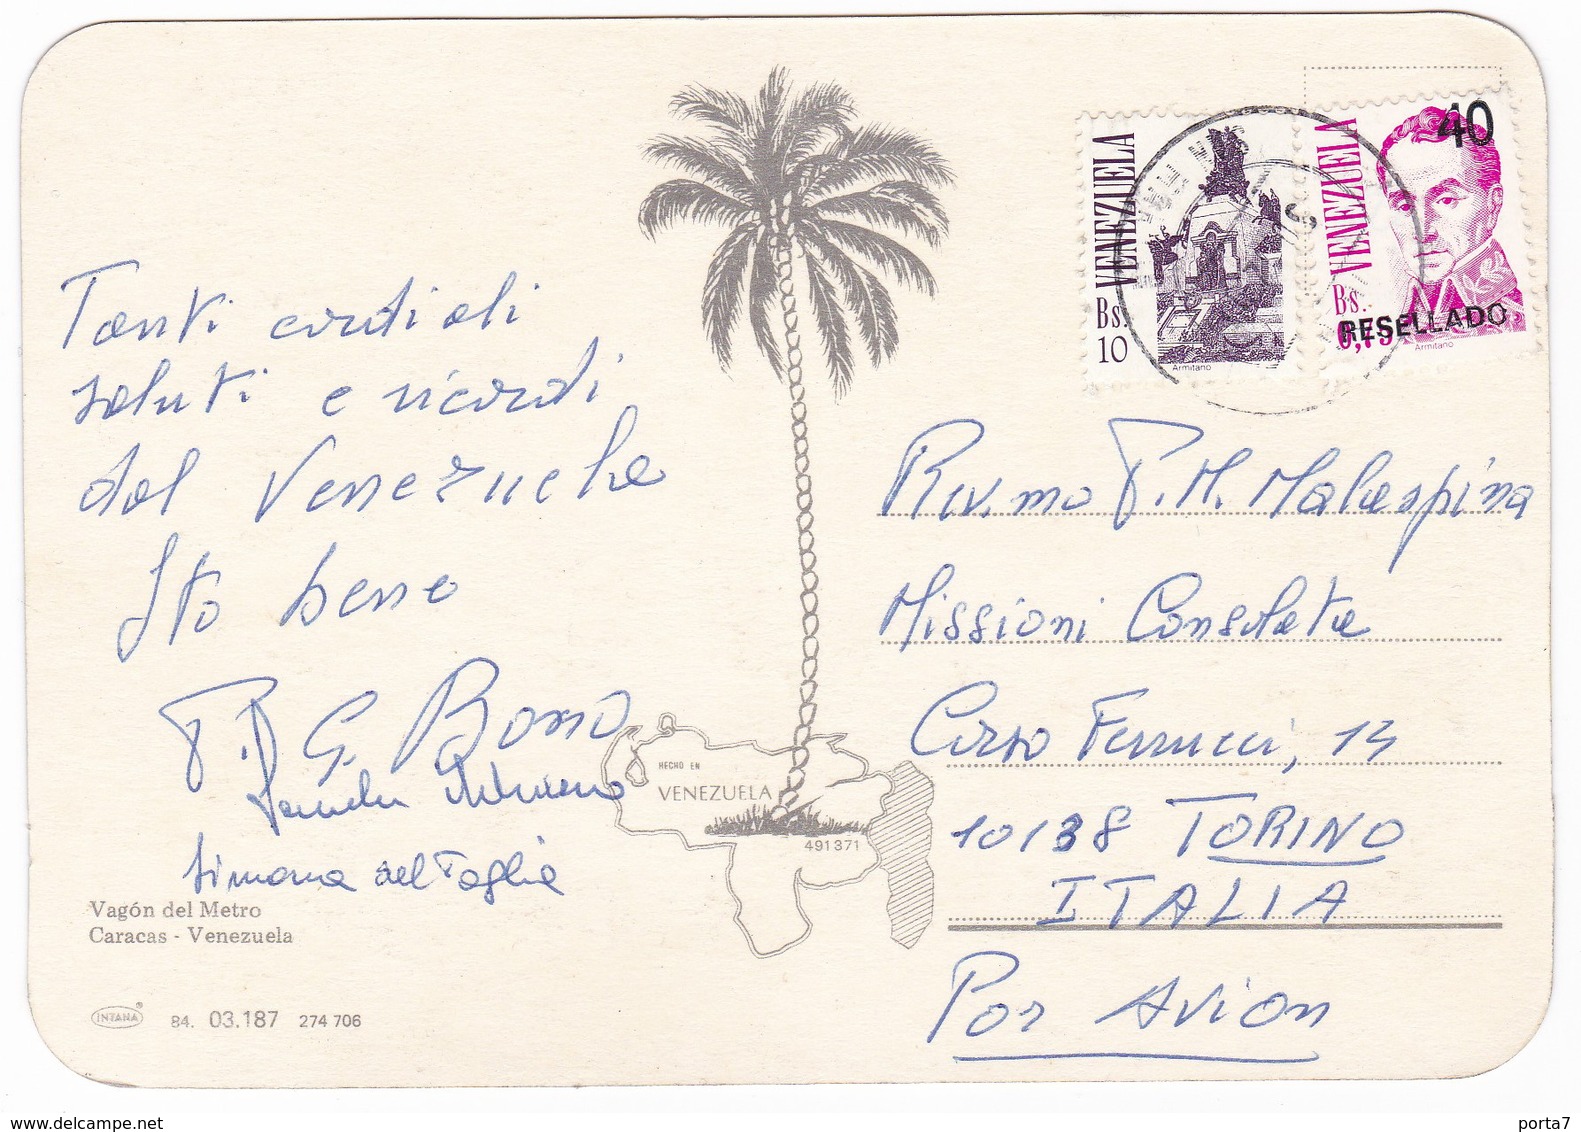 Tanti cordiali
saluti e ricordi
dal Venezuela
Sto bene
P. G. Bono
Simona del Paglia
Vagón del Metro
Caracas - Venezuela
INTANA® 84. 03.187 274 706
HECHO EN
VENEZUELA
491371
VENEZUELA
Bs.
10
Armitano
VENEZUELA
40
Bs.
0,75
RESELLADO
Armitano
Rev.mo P. M. Malaspina
Missioni Consolata
Corso Ferrucci, 14
10138 TORINO
ITALIA
Por Avion
www.delcampe.net
porta7